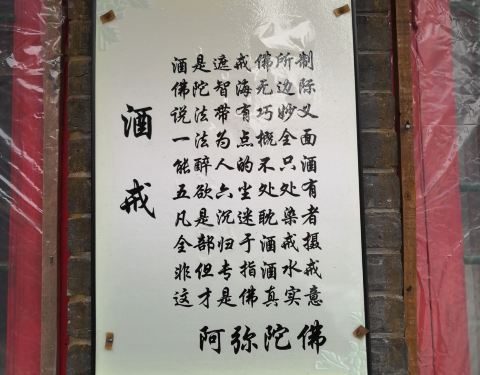 酒戒
酒是遮戒佛所制
佛陀智海无边际
说法带有巧妙义
一法为点概全面
能醉人的不只酒
五欲六尘处处有
凡是沉迷耽染者
全部归于酒戒摄
非但专指酒水戒
这才是佛真实意
阿弥陀佛